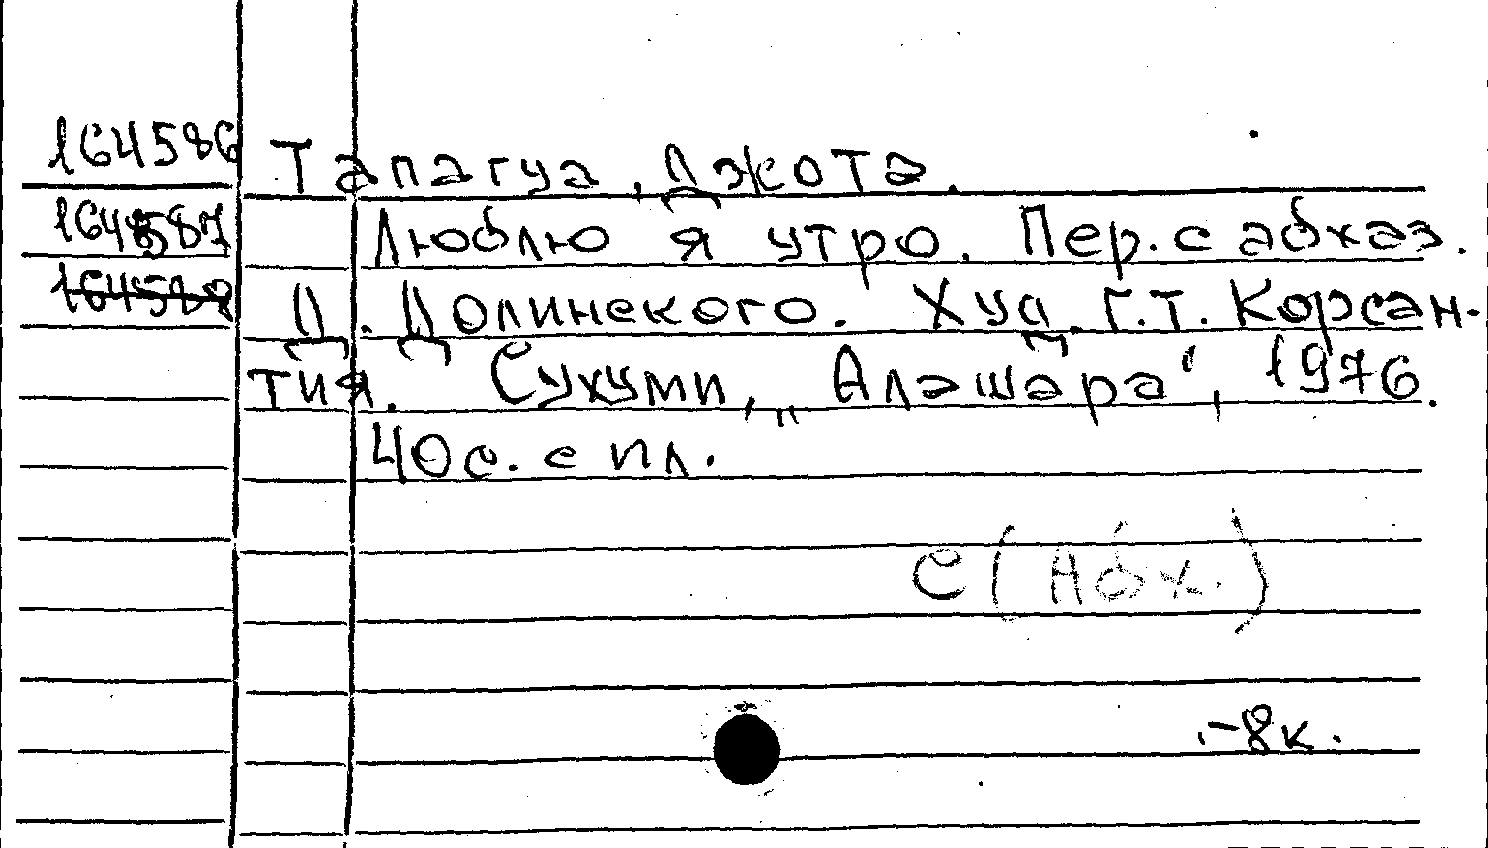 164586 Тапагуа, Джота.
164587 Люблю я утро. Пер. с абхаз.
164588 Д. Долинского. Худ. Г.Т. Корсан-
тия. Сухуми, „Алашара“, 1976.
40 с. с ил.
С(Абх.)
-8к.